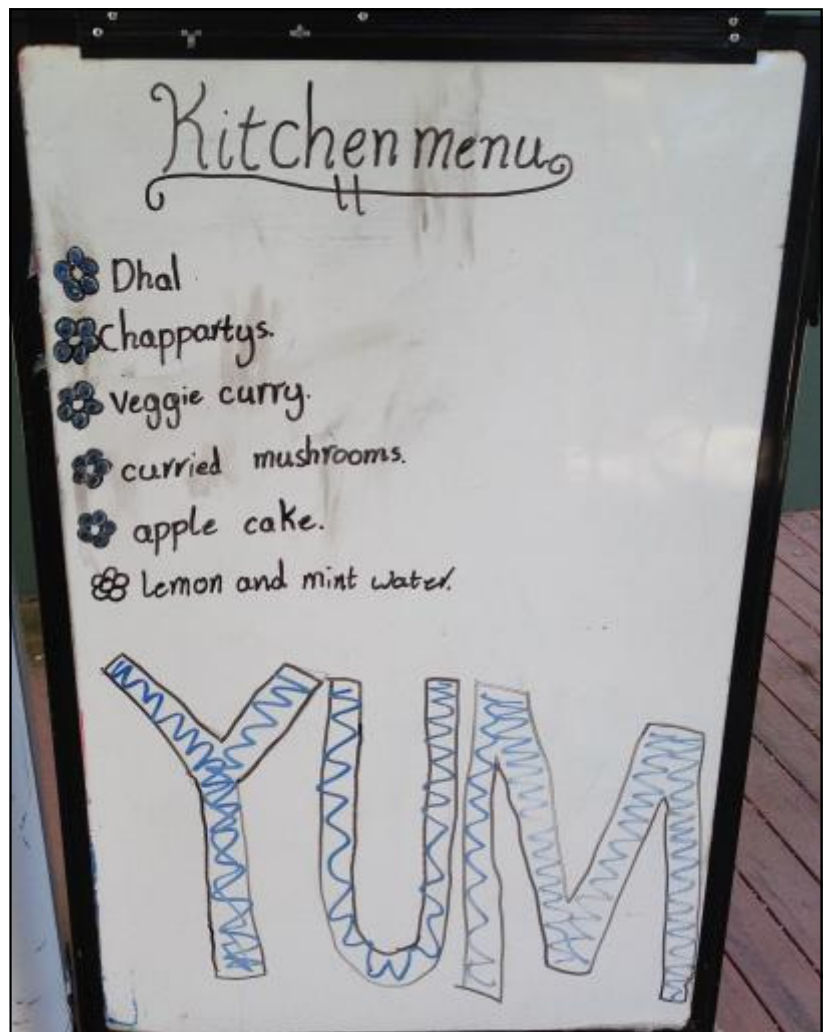 Kitchen menu
Dhal
Chappartys.
Veggie curry.
curried mushrooms.
apple cake.
Lemon and mint water.
YUM